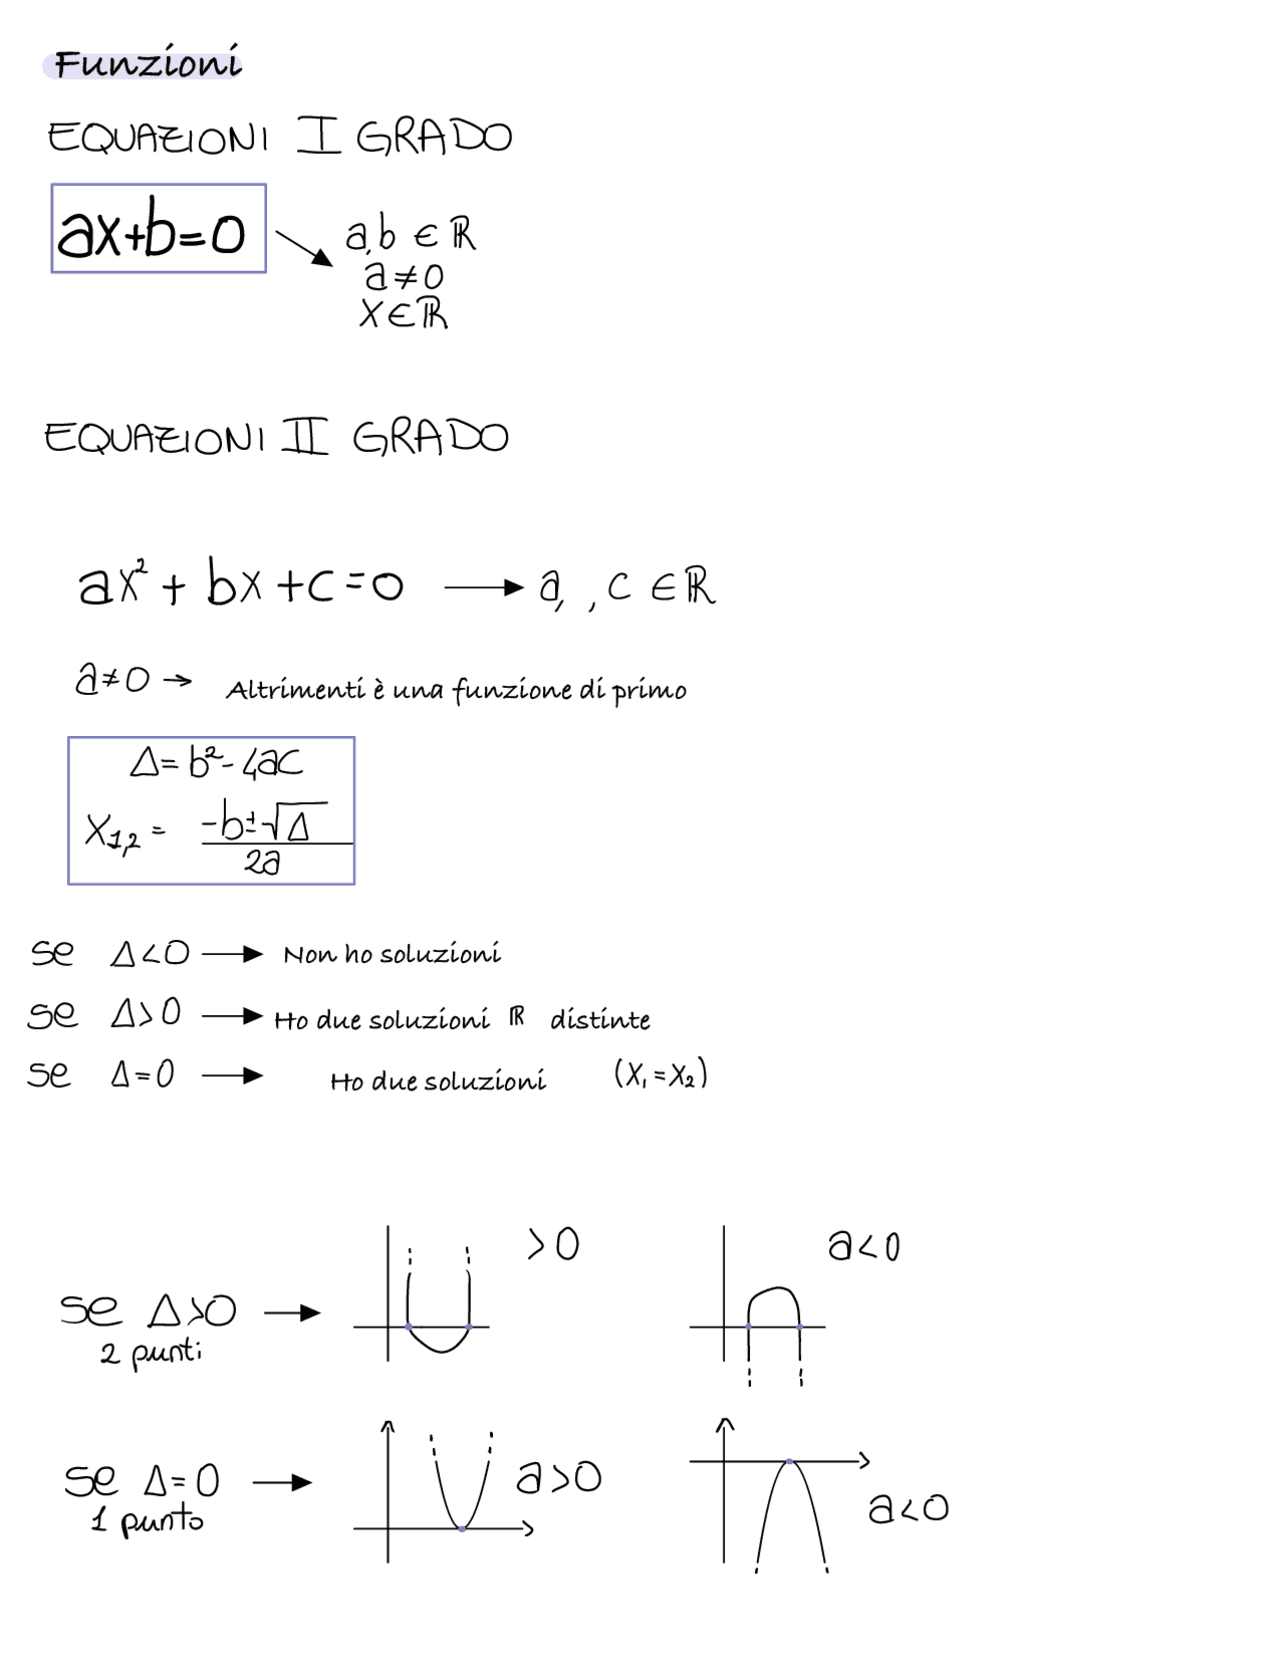 Funzioni
EQUAZIONI I GRADO
ax+b=0
a,b ∈ ℝ
a≠0
x∈ℝ
EQUAZIONI II GRADO
ax²+bx+c=0 → a, , c ∈ ℝ
a≠0 → Altrimenti è una funzione di primo
Δ=b²-4ac
X₁,₂ = -b±√Δ / 2a
se Δ<0 → Non ho soluzioni
se Δ>0 → Ho due soluzioni ℝ distinte
se Δ=0 → Ho due soluzioni (X₁=X₂)
>0
a<0
se Δ>0 →
2 punti
se Δ=0 →
1 punto
a>0
a<0